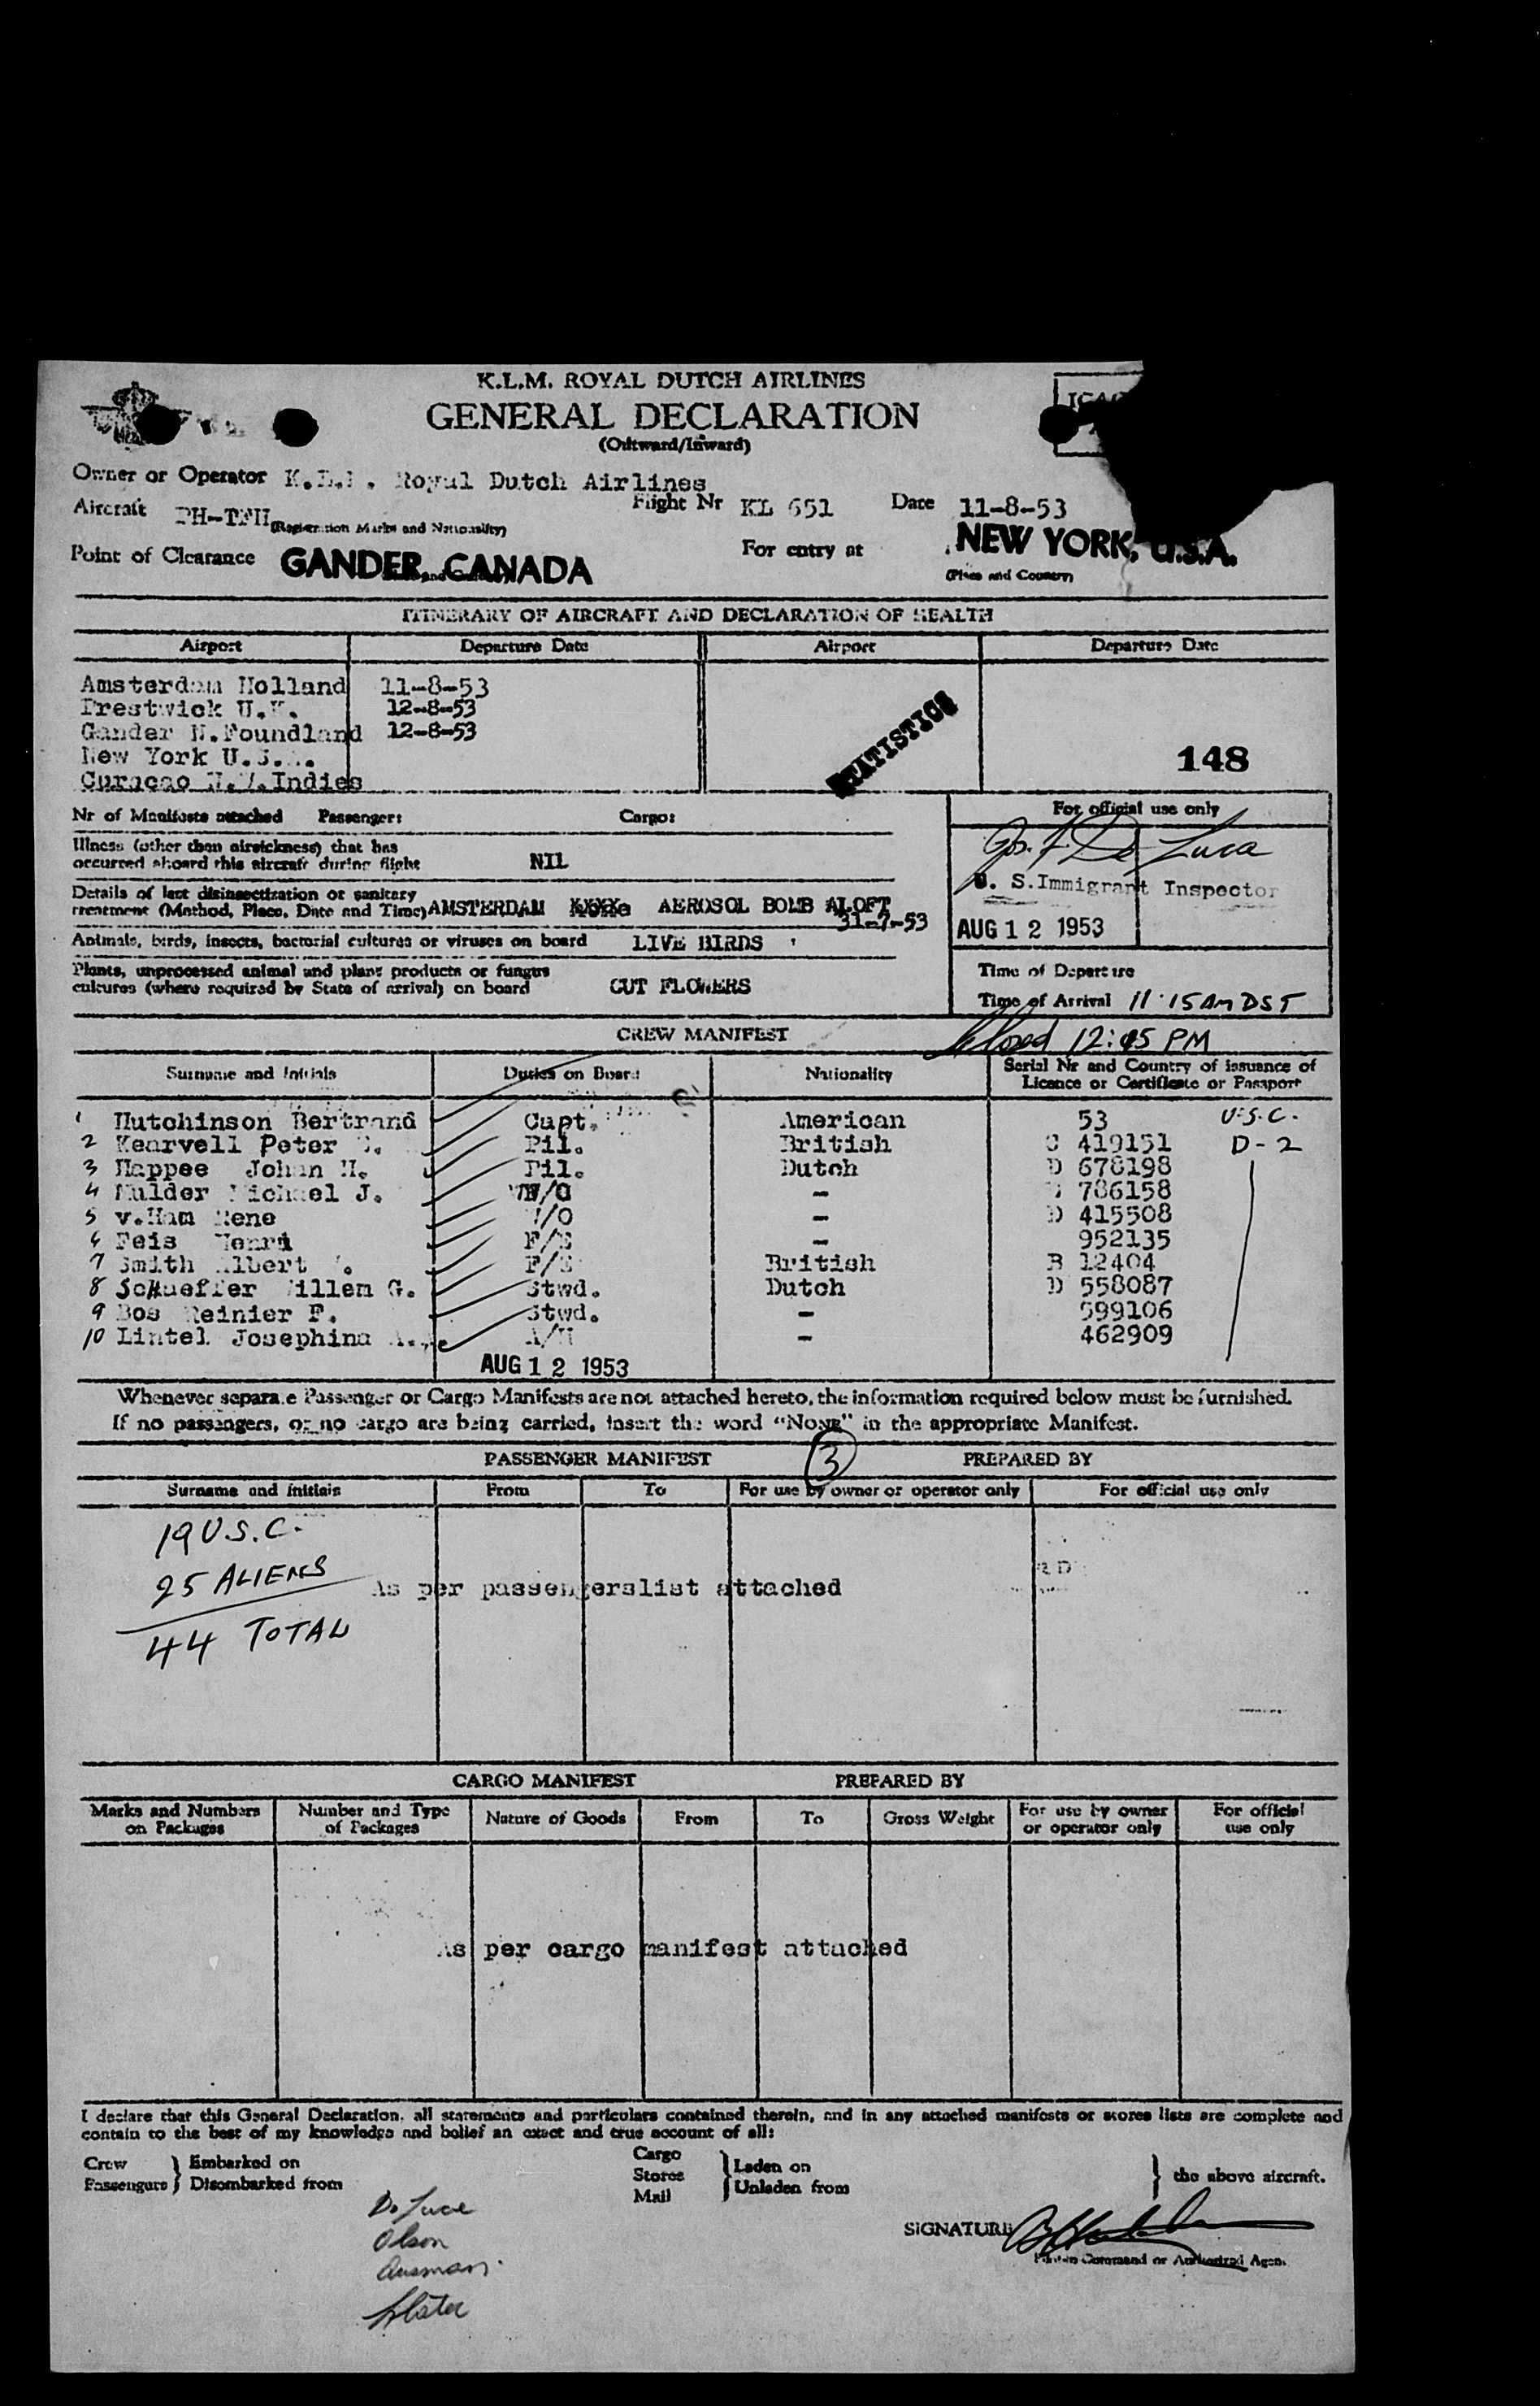 K.L.M. ROYAL DUTCH AIRLINES
GENERAL DECLARATION
(Outward/Inward)
Owner or Operator K.L.M. Royal Dutch Airlines
Aircraft PH-TFH (Registration Marks and Nationality) Flight Nr KL 651 Date 11-8-53
Point of Clearance GANDER, CANADA For entry at NEW YORK, U.S.A.
(Place and Country)
ITINERARY OF AIRCRAFT AND DECLARATION OF HEALTH
Airport Departure Date Airport Departure Date
Amsterdam Holland 11-8-53
Prestwick U.K. 12-8-53
Gander N.Foundland 12-8-53
New York U.S.A.
Curacao N.W.Indies
STATISTICS
148
Nr of Manifests attached Passenger: Cargo:
For official use only
Illness (other than airsickness) that has
occurred aboard this aircraft during flight NIL
Jos. F. De Luca
U. S. Immigrant Inspector
AUG 12 1953
Details of last disinsectization or sanitary
treatment (Method, Place, Date and Time) AMSTERDAM AEROSOL BOMB ALOFT
31-7-53
Animals, birds, insects, bacterial cultures or viruses on board LIVE BIRDS
Plants, unprocessed animal and plant products or fungus
cultures (where required by State of arrival) on board CUT FLOWERS
Time of Departure
Time of Arrival 11:15 AM DST
CREW MANIFEST
Closed 12:45 PM
Surname and Initials Duties on Board Nationality Serial Nr and Country of issuance of
Licence or Certificate or Passport
1 Hutchinson Bertrand Capt. American 53 U.S.C.
2 Kearvell Peter Pil. British 419151 D-2
3 Happee Johan H. Pil. Dutch D 678198
4 Mulder Michael J. W/O - 786158
5 v.Ham Rene W/O - D 415508
6 Feis Henri F/E - 952135
7 Smith Albert F/E British B 12404
8 Schaeffer Willem G. Stwd. Dutch D 558087
9 Bos Reinier F. Stwd. - 599106
10 Lintel Josephina A. A/H - 462909
AUG 12 1953
Whenever separate Passenger or Cargo Manifests are not attached hereto, the information required below must be furnished.
If no passengers, or no cargo are being carried, insert the word "NONE" in the appropriate Manifest.
PASSENGER MANIFEST 3 PREPARED BY
Surname and Initials From To For use by owner or operator only For official use only
19 U.S.C.
25 ALIENS
As per passengerslist attached
44 TOTAL
CARGO MANIFEST PREPARED BY
Marks and Numbers on Packages Number and Type of Packages Nature of Goods From To Gross Weight For use by owner or operator only For official use only
As per cargo manifest attached
I declare that this General Declaration, all statements and particulars contained therein, and in any attached manifests or stores lists are complete and
contain to the best of my knowledge and belief an exact and true account of all:
Crew Passengers } Embarked on Disembarked from Cargo Stores Mail } Laden on Unladen from } the above aircraft.
De Luca
Olson
Ausman
Slater
SIGNATURE
Pilot-in-Command or Authorized Agent